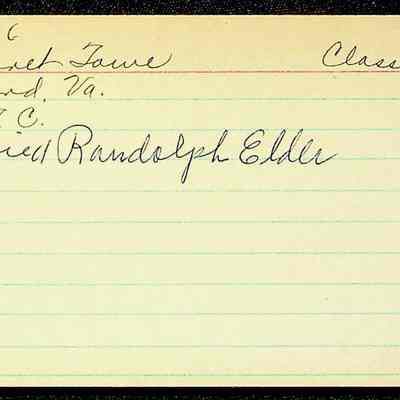 6
ret Towe Class
rd, Va.
C.
ried Randolph Elder